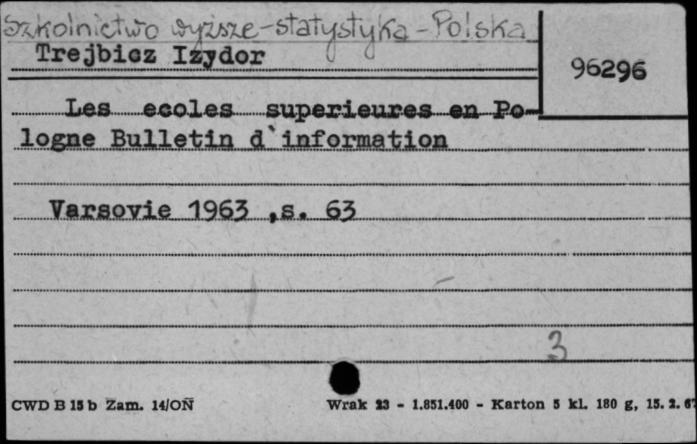 Szkolnictwo wyższe-statystyka-Polska
Trejbicz Izydor
96296
Les ecoles superieures en Po-
logne Bulletin d`information
Varsovie 1963 ,s. 63
3
CWD B 15 b Zam. 14/ON Wrak 23 - 1.851.400 - Karton 5 kl. 180 g, 15. 2. 6